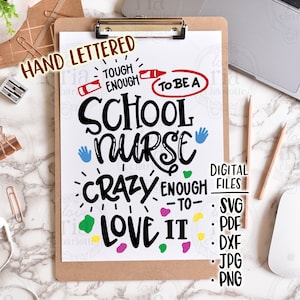 HAND LETTERED
TOUGH
ENOUGH
TO BE A
SCHOOL
NURSE
CRAZY ENOUGH
-TO-
LOVE IT
DIGITAL
FILES
• SVG
• PDF
• DXF
• JPG
• PNG